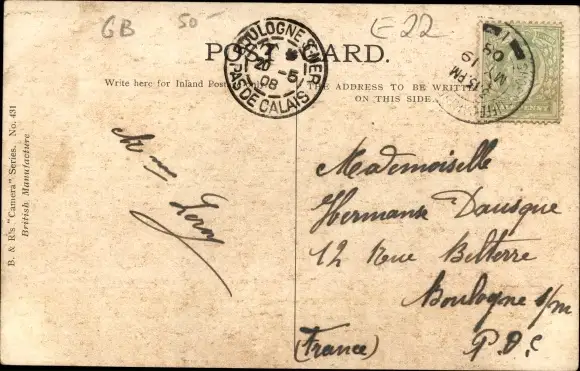 GB 50-
E 22
POST CARD.
BOULOGNE S-MER
20 -5
08
PAS DE CALAIS
Write here for Inland Post
THE ADDRESS TO BE WRITTEN
ON THIS SIDE.
MY 19
08
B. & R's "Camera" Series. No. 431
British Manufacture
Mme Leroy
Mademoiselle
Hermanse Dausque
12 Rue Belterre
Boulogne s/m
(France) P. D. C